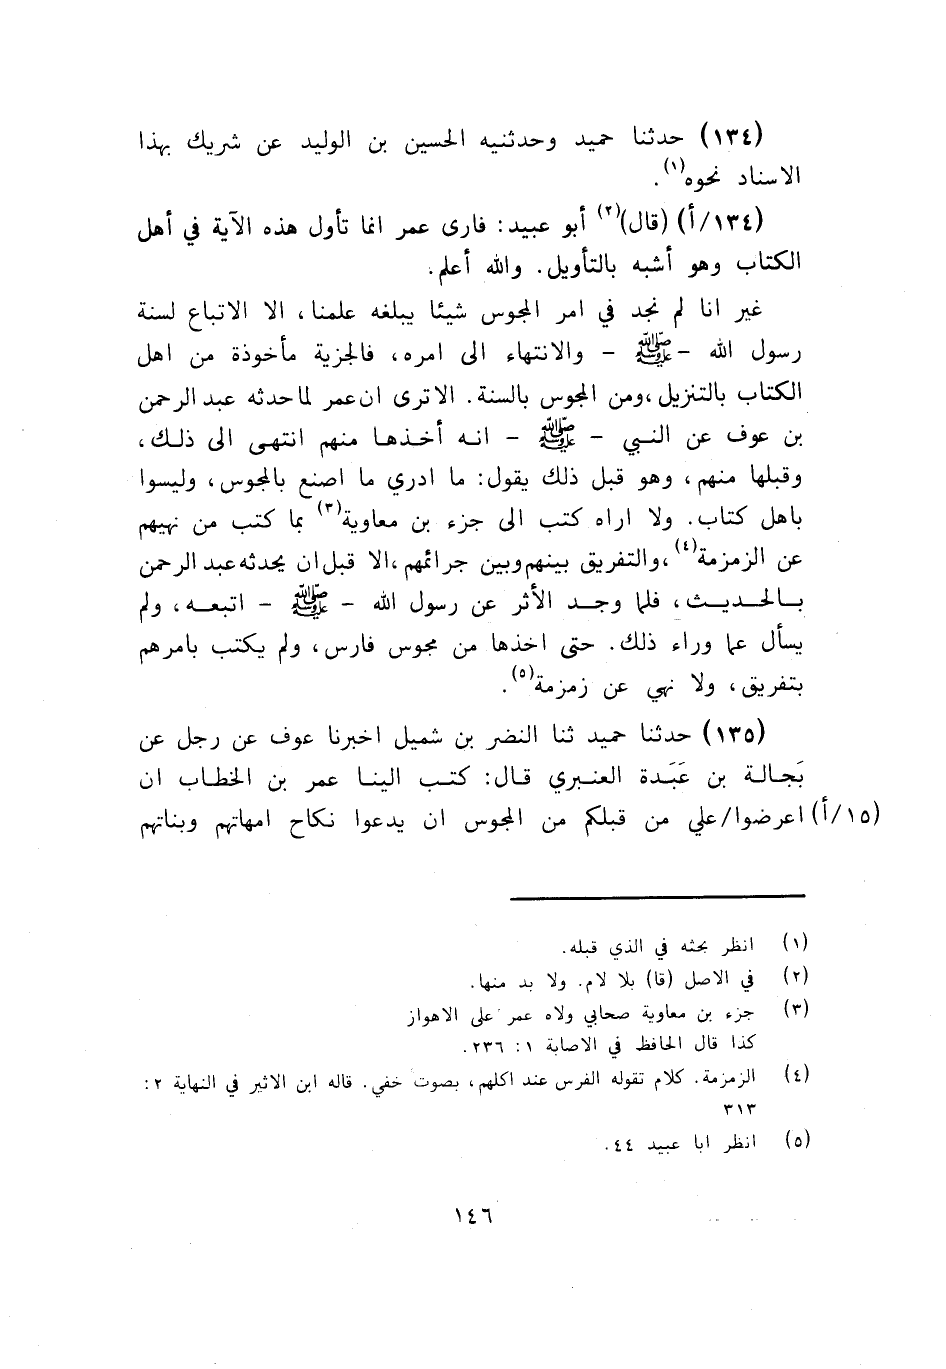 (١٣٤) حدثنا حميد وحدثنيه الحسين بن الوليد عن شريك بهذا
الاسناد نحوه(١).
(١٣٤/أ) (قال)(٢) أبو عبيد: فارى عمر انما تأول هذه الآية في أهل
الكتاب وهو أشبه بالتأويل. والله أعلم.
غير انا لم نجد في امر المجوس شيئا يبلغه علمنا، الا الاتباع لسنة
رسول الله - ﷺ - والانتهاء الى امره، فالجزية مأخوذة من اهل
الكتاب بالتنزيل، ومن المجوس بالسنة. الا ترى ان عمر لما حدثه عبد الرحمن
بن عوف عن النبي - ﷺ - انه أخذها منهم انتهى الى ذلك،
وقبلها منهم، وهو قبل ذلك يقول: ما ادري ما اصنع بالمجوس، وليسوا
باهل كتاب. ولا اراه كتب الى جزء بن معاوية(٣) بما كتب من نهيهم
عن الزمزمة(٤)، والتفريق بينهم وبين جرائمهم، الا قبل ان يحدثه عبد الرحمن
بالحديث، فلما وجد الأثر عن رسول الله - ﷺ - اتبعه، ولم
يسأل عما وراء ذلك. حتى اخذها من مجوس فارس، ولم يكتب بامرهم
بتفريق، ولا نهي عن زمزمة(٥).
(١٣٥) حدثنا حميد ثنا النضر بن شميل اخبرنا عوف عن رجل عن
بَجالة بن عَبَدة العنبري قال: كتب الينا عمر بن الخطاب ان
(١٥/أ) اعرضوا/علي من قبلكم من المجوس ان يدعوا نكاح امهاتهم وبناتهم
(١) انظر بحثه في الذي قبله.
(٢) في الاصل (قا) بلا لام. ولا بد منها.
(٣) جزء بن معاوية صحابي ولاه عمر على الاهواز
كذا قال الحافظ في الاصابة ١: ٢٣٦.
(٤) الزمزمة. كلام تقوله الفرس عند اكلهم، بصوت خفي. قاله ابن الاثير في النهاية ٢:
٣١٣
(٥) انظر ابا عبيد ٤٤.
١٤٦